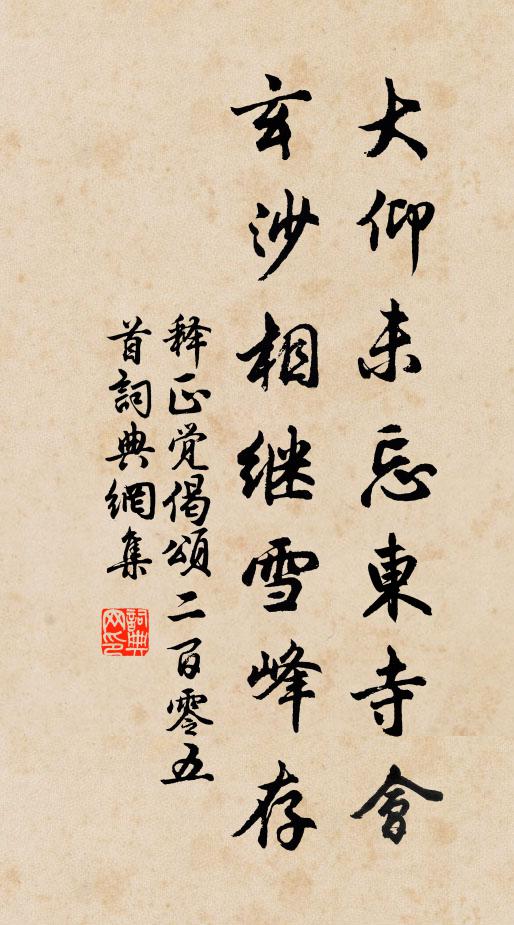 大仰未忘東寺會
玄沙相继雪峰存
释正觉偈頌二百零五
首詞典網集
詞典网印